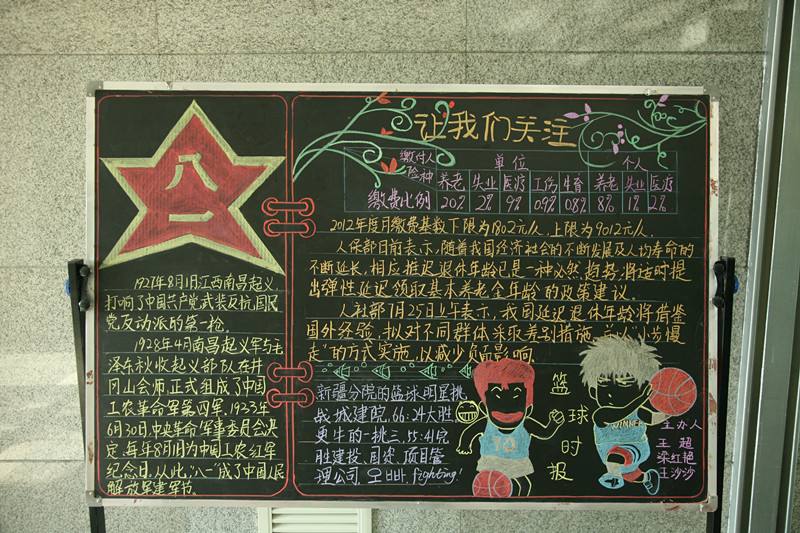 八一
1927年8月1日江西南昌起义
打响了中国共产党武装反抗国民
党反动派的第一枪。
1928年4月南昌起义军与毛
泽东秋收起义部队在井
冈山会师,正式组成了中国
工农革命军第四军,1933年
6月30日,中央革命军事委员会决
定,每年8月1日为中国工农红军
纪念日,从此,“八一”成了中国人民
解放军建军节。
让我们关注
缴付人 单位 个人
险种 养老 失业 医疗 工伤 生育 养老 失业 医疗
缴费比例 20% 2% 9% 0.9% 0.8% 8% 1% 2%
2012年度月缴费基数下限为1802元/人,上限为9012元/人.
人保部日前表示,随着我国经济社会的不断发展及人均寿命的
不断延长,相应推迟退休年龄已是一种必然趋势,将适时提
出弹性延迟领取基本养老金年龄的政策建议。
人社部7月25日上午表示,我国延迟退休年龄将借鉴
国外经验,拟对不同群体采取差别措施,并以“小步慢
走”的方式实施,以减少负面影响
新疆分院的篮球明星挑
战城建院,66:24大胜
更牛的一挑三,55:41完
胜建投、国农、项目管
理公司,오빠 fighting!
篮球时报
10
WINNER
主办人
王超
梁红艳
王沙沙